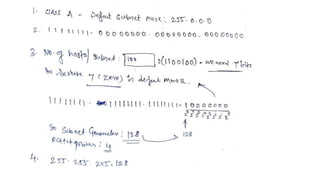 1. CLASS A - Default Subnet Mask: 255.0.0.0
2. 11111111. 00000000. 00000000. 00000000
3. No. of hosts/Subnet: 100 :(1100100) - we need 7 bits
So Reserve 7 (zero) in default mask
11111111. 11111111. 1 0000000
128
So Subnet Generator: 128
Octet position: 4
4. 255. 255. 255. 128